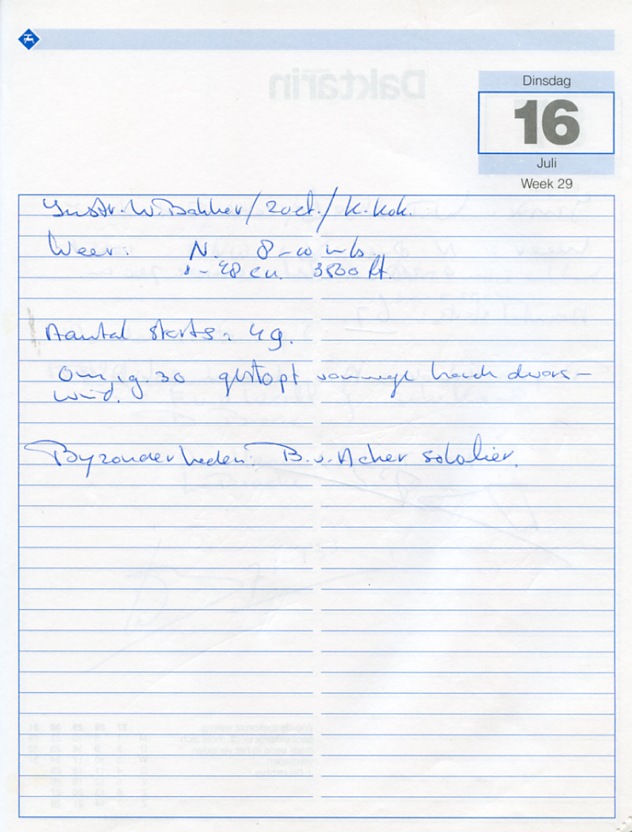 Dinsdag
16
Juli
Week 29
Instr. W. Bakker / Zoet. / K. Kok.
Weer: N. 8-10 m/s.
3500 ft.
Aantal starts: 49.
Om 19.30 gestopt vanwege harde dwars-
wind.
Byzonderheden: B. v. Acher solo